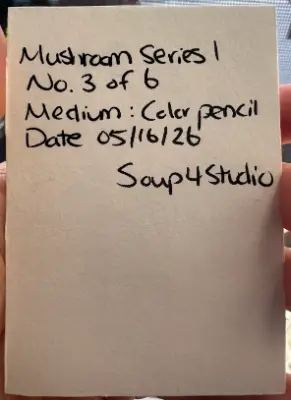 Mushroom Series 1
No. 3 of 6
Medium: Color pencil
Date 05/16/26
Soup4Studio